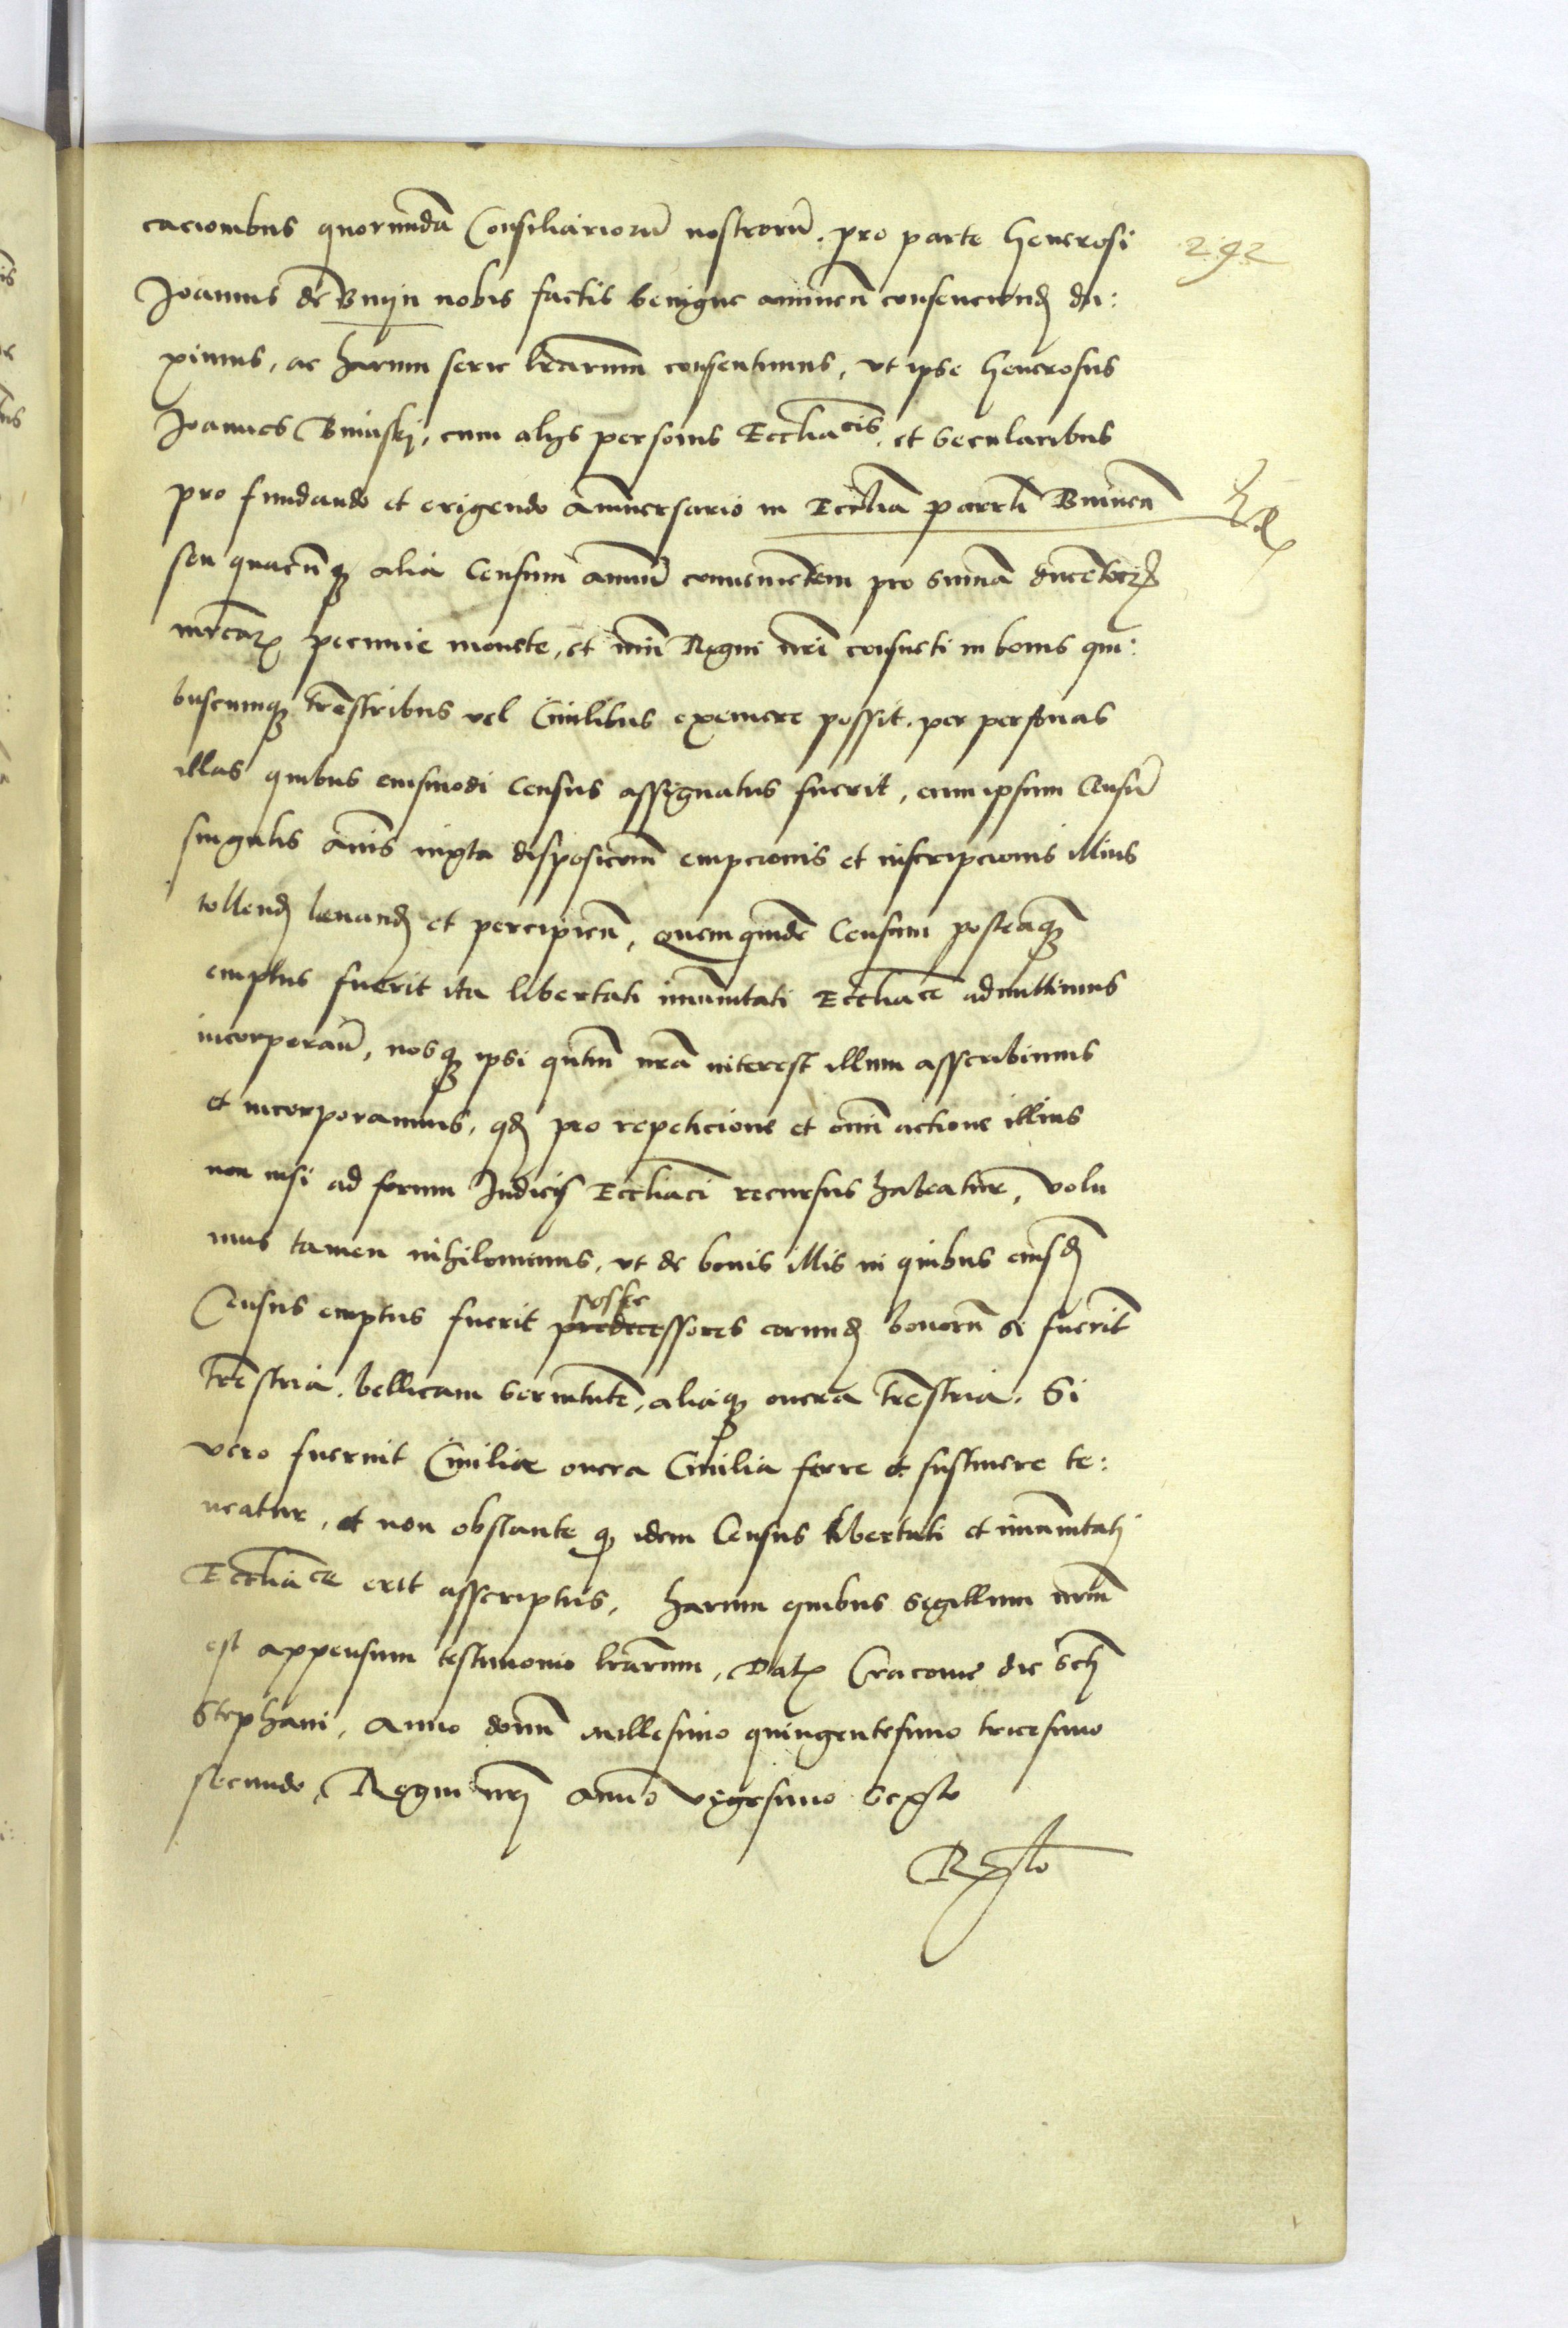 cacionibus quorundā Consiliariorū nostrorū, pro parte Generosi
292
Joannis de Bnijn nobis factis benigne annuen̄ consenciend du:
ximus, ac harum serie lr̄arum consentimus, ut ipse Generosus
Joannes Bninskj, cum alijs personis Eccl̄iacis, et secularibus
pro fundando et erigendo anniversario in Eccl̄ia parrl̄i Bninen̄
seu quacūq alia Censum annuū convenientem pro sum̄a ducētor
mrcar pecunie monete, et nūi Regni nr̄i consueti in bonis qui:
buscumq tr̄estribus vel Civilibus exemere possit, per personas
illas quibus eiusmodi Census assignatus fuerit, eum ipsum Censū
singulis an̄is iuxta disposicōm empcionis et inscripcionis illius
tollend levand et percipien̄, quem quidē Censum posteāq
emptus fuerit ita libertati im̄unitati Eccl̄iace admittimus
incorporan̄, nosq ipsi quātū nr̄a interest illum asscribimus
et incorporamus, qd pro repeticione et om̄i actione illius
non nisi ad forum Judicis Eccl̄iaci recursus habeatur, volu
mus tamen nihilominus, ut de bonis illis in quibus eiusd
Census emptus fuerit predecessores eorund bonorū si fuerīt
posse
tr̄estria, bellicam servitutē, aliāq onera tr̄estria. Si
vero fuerint Civilia onera Civilia ferre et sustinere te:
neatur, et non obstante q idem Census libertati et im̄unitati
Eccl̄iace erit asscriptus, harum quibus sigillum nr̄m
est appensum testimonio lr̄arum, Dat Cracovie die Scti
Stephani, Anno domī millesimo quingentesimo tricesimo
secundo, Regni nri anno vigesimo sexto